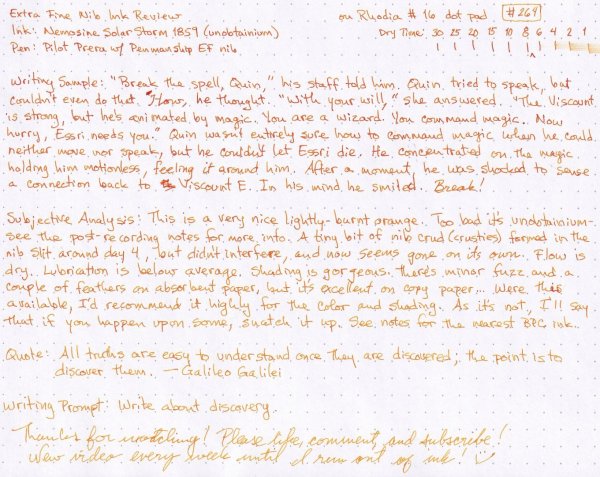 Extra Fine Nib Ink Review on Rhodia #16 dot pad #269
Ink: Nemosine Solar Storm 1859 (unobtainium) Dry Time: 30 25 20 15 10 8 6 4 2 1
Pen: Pilot Prera w/ Penmanship EF nib
Writing Sample: "Break the spell, Quin," his staff told him. Quin tried to speak, but
couldn't even do that. How, he thought. "With your will," she answered. "The Viscount
is strong, but he's animated by magic. You are a wizard. You command magic. Now
hurry, Essri needs you." Quin wasn't entirely sure how to command magic when he could
neither move nor speak, but he couldn't let Essri die. He concentrated on the magic
holding him motionless, feeling it around him. After a moment, he was shocked to sense
a connection back to Viscount E. In his mind he smiled. Break!
Subjective Analysis: This is a very nice lightly-burnt orange. Too bad it's unobtainium-
see the post-recording notes for more info. A tiny bit of nib crud (crusties) formed in the
nib slit around day 4, but didn't interfere, and now seems gone on its own. Flow is
dry. Lubrication is below average. Shading is gorgeous. there's minor fuzz and a
couple of feathers on absorbent paper, but it's excellent on copy paper... Were this
available, I'd recommend it highly for the color and shading. As it's not, I'll say
that if you happen upon some, snatch it up. See notes for the nearest BPC ink.
Quote: All truths are easy to understand once they are discovered; the point is to
discover them. — Galileo Galilei
Writing Prompt: Write about discovery.
Thanks for watching! Please like, comment, and subscribe!
New video every week until I run out of ink!